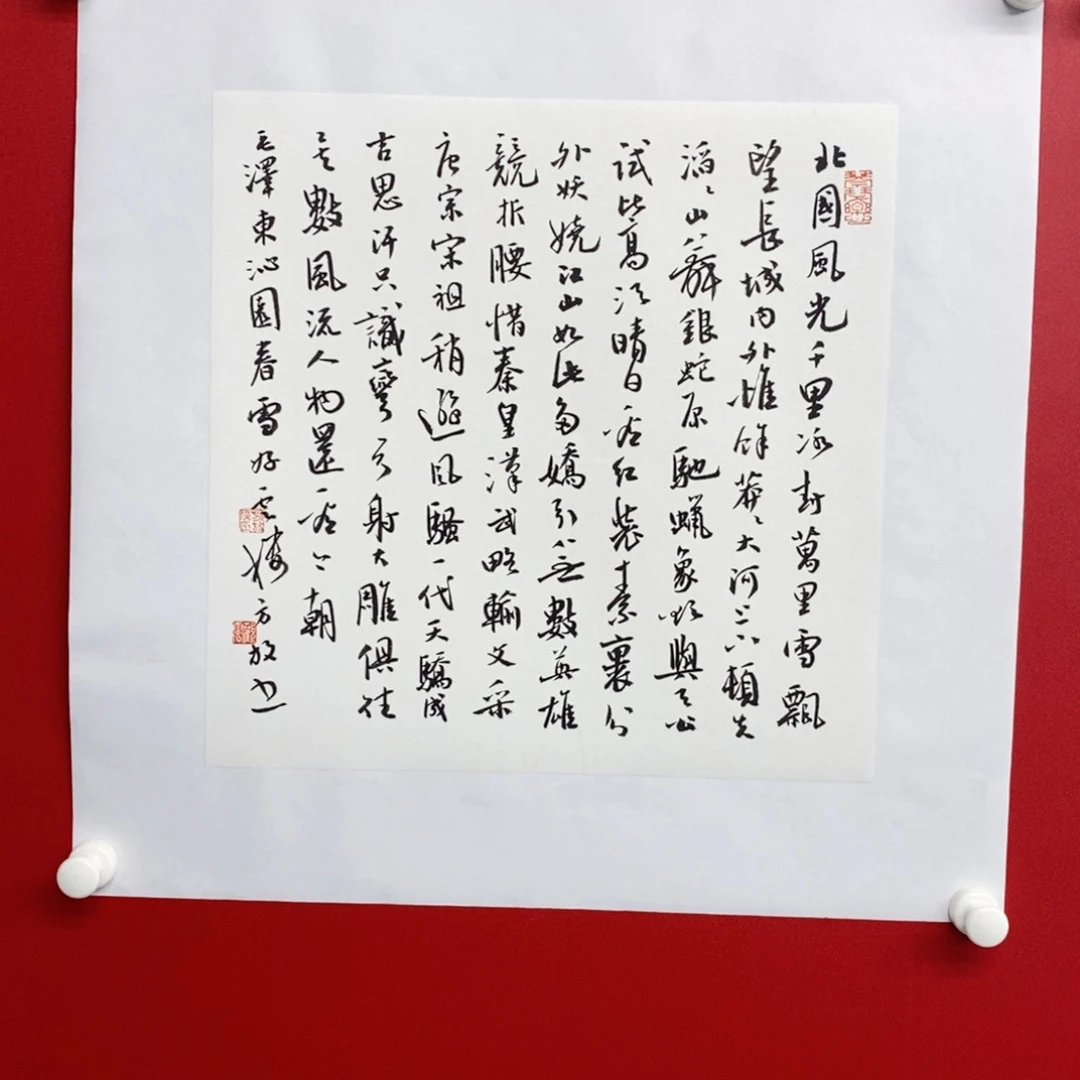 北國風光千里冰封萬里雪飄
望長城内外惟餘莽〻大河上下頓失
滔〻山舞銀蛇原馳蠟象欲與天公
試比高須晴日看紅裝素裹分
外妖嬈江山如此多嬌引無數英雄
競折腰惜秦皇漢武略輸文采
唐宗宋祖稍遜風騷一代天驕成
吉思汗只識彎弓射大雕俱往
矣數風流人物還看今朝
毛澤東沁園春雪好雲樓方放书